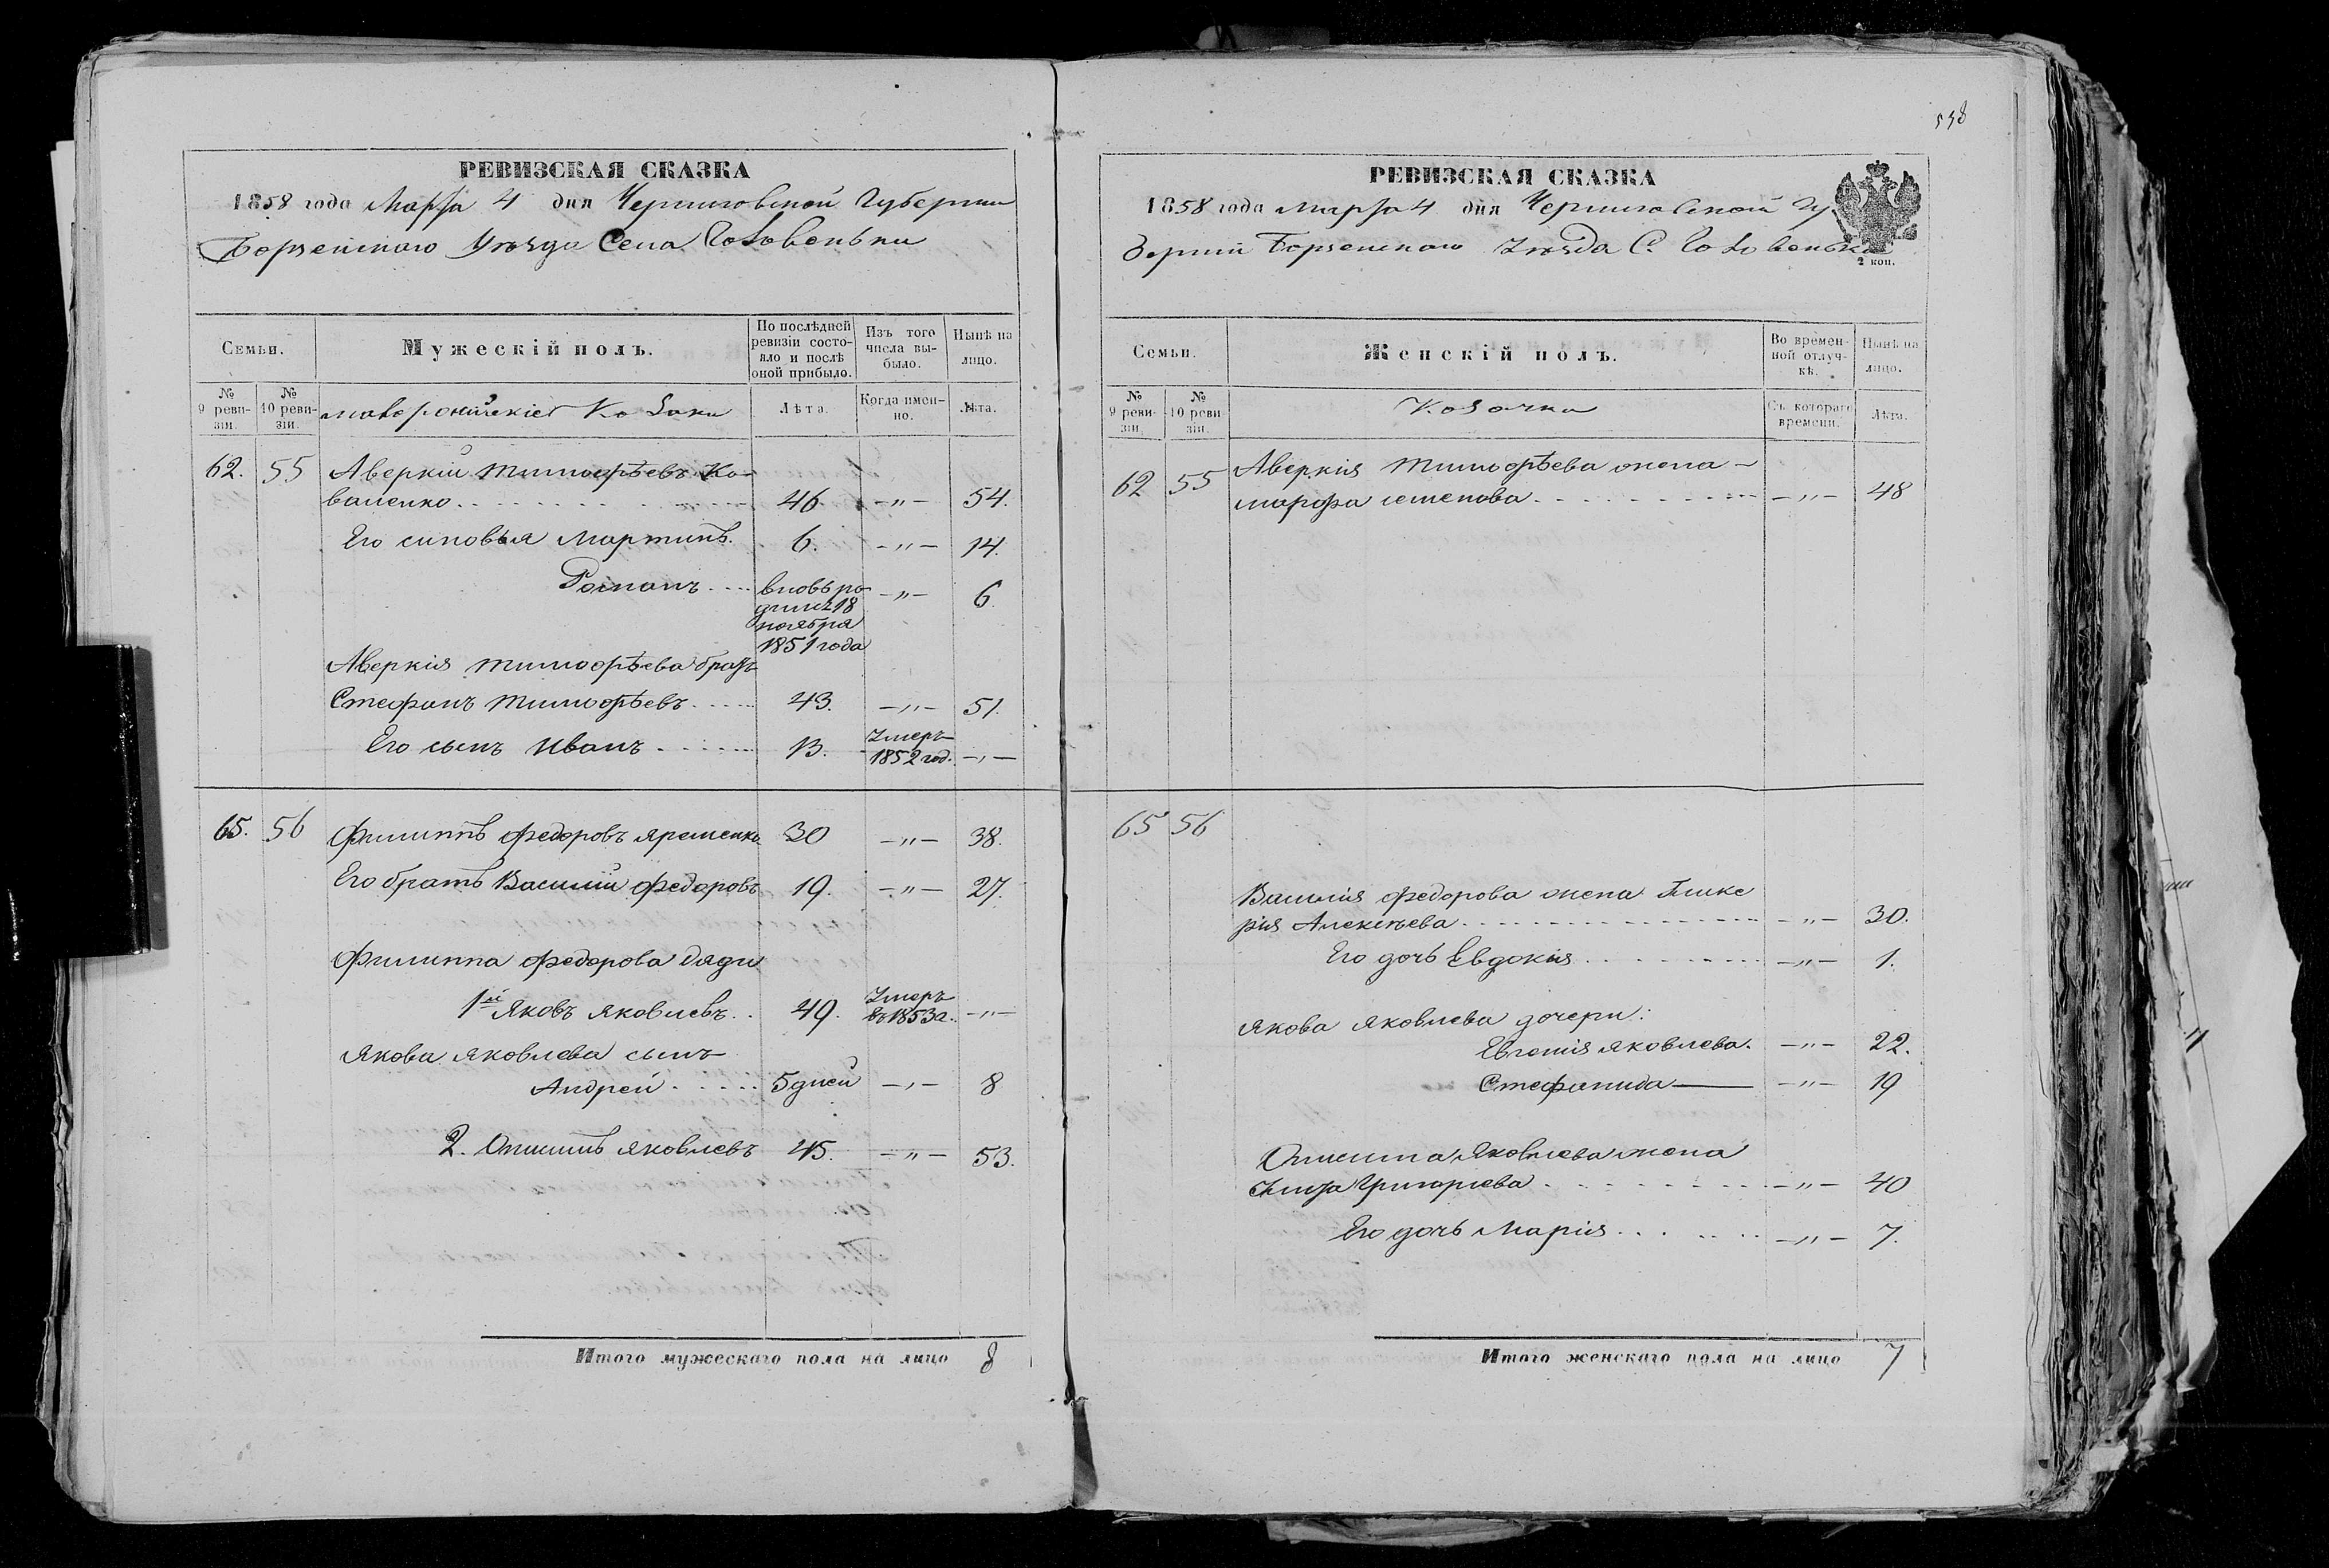 558
РЕВИЗСКАЯ СКАЗКА
1858 года Марта 4 дня Черниговской Губернии
Борзенского Уѣзда Села
Семьи.
Мужескій полъ.
По послѣдней ревизіи состояло и послѣ оной прибыло.
Изъ того числа выбыло.
Нынѣ на лицо.
№ 9 ревизіи.
№ 10 ревизіи.
малороссійскіе Козаки
Лѣта.
Когда именно.
Лѣта.
62. 55 Аверкій Тимофѣевъ Ко-
валенко 46 -"- 54.
Его синовья Мартинъ. 6. -"- 14.
Романъ вновь ро- -"- 6.
дился 18
ноября
1851 года
Аверкія Тимофѣева братъ
Стефанъ Тимофѣевъ 43. -"- 51.
Его сынъ Иванъ 13. Умеръ 1852 год. -"-
65. 56 Филиппъ Федоровъ Яременко 30 -"- 38.
Его братъ Василій Федоровъ 19. -"- 27.
Филиппа Федорова дяди
1й Яковъ Яковлевъ 49. Умеръ въ 1853 г. -"-
Якова Яковлева сынъ
Андрей 5 дней -"- 8
2. Яковлевъ 45. -"- 53.
Итого мужескаго пола на лицо 8
РЕВИЗСКАЯ СКАЗКА
1858 года марта 4 дня Черниговской Гу-
берніи Борзенского Уѣзда С.
2 коп.
Семьи.
Женскій полъ.
Во временной отлучкѣ.
Нынѣ на лицо.
№ 9 ревизіи.
№ 10 ревизіи.
Козачки
Съ котораго времени.
Лѣта.
62 55 Аверкія Тимофѣева жена -
марфа семенова -"- 48
65 56
Василія Федорова жена Глике
рія Алексѣева -"- 30.
Его дочь Евдокія -"- 1.
Якова Яковлева дочери:
Евгенія Яковлева. -"- 22.
Стефанида -"- 19
Яковлева жена
Григорьева -"- 40
Его дочь Марія -"- 7.
Итого женскаго пола на лицо 7